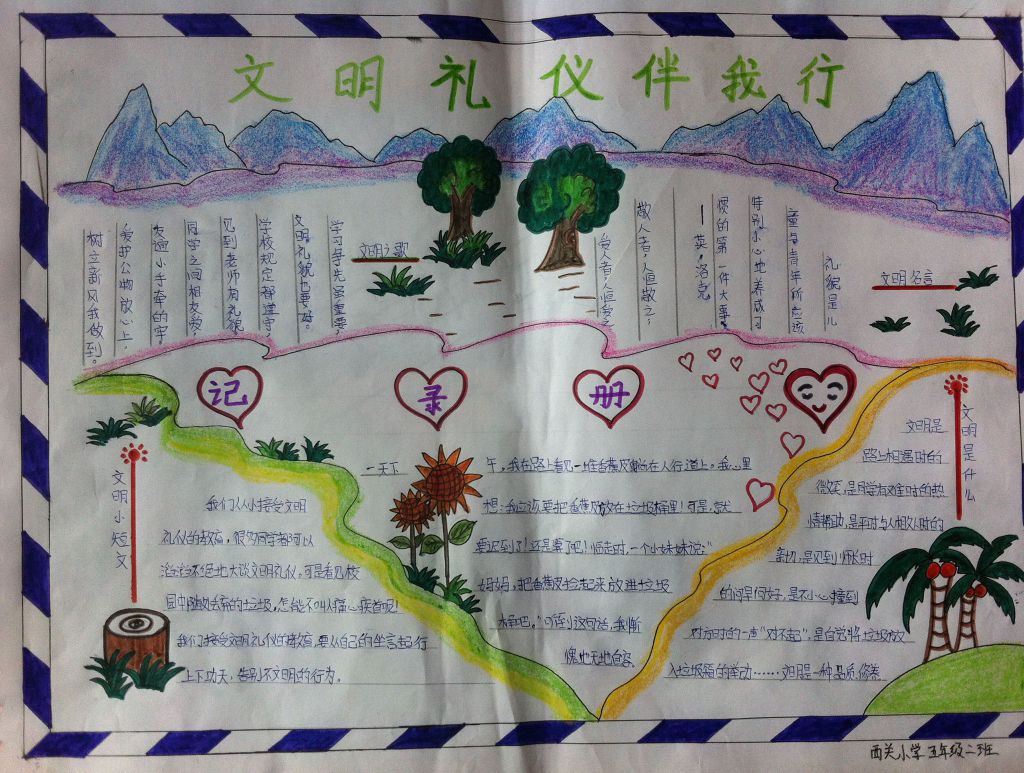 文明礼仪伴我行
文明名言
礼貌是儿
童与青年所应该
特别小心地养成习
惯的第一件大事。
——英·洛克
敬人者,人恒敬之;
爱人者,人恒爱之。
文明之歌
学习争先虽重要,
文明礼貌也要好。
学校规定都遵守,
见到老师有礼貌
同学之间相友爱,
友谊小手牵的牢。
爱护公物放心上,
树立新风我做到。
记录册
一天下午,我在路上看见一块香蕉皮躺在人行道上。我心里
想:我应该要把香蕉皮放在垃圾桶里!可是,就
要迟到了!还是算了吧!临走时,一个小妹妹说:“
妈妈,把香蕉皮捡起来放进垃圾
桶吧。”听到这句话,我惭
愧地无地自容。
文明小短文
我们从小接受文明
礼仪的教育,很多同学都可以
滔滔不绝地大谈文明礼仪,可是看见校
园中随处丢弃的垃圾,怎能不叫人痛心疾首呢!
我们接受文明礼仪的教育,要从自己的坐言起行
上下功夫,告别不文明的行为。
文明是什么
文明是
路上相遇时的
微笑,是同学有难时的热
情帮助,是平时与人相处时的
亲切,是见到师长时
的问早问好,是不小心撞到
对方时的一声“对不起”,是自觉将垃圾放
入垃圾箱的举动……文明是一种品质、修养
西关小学五年级二班